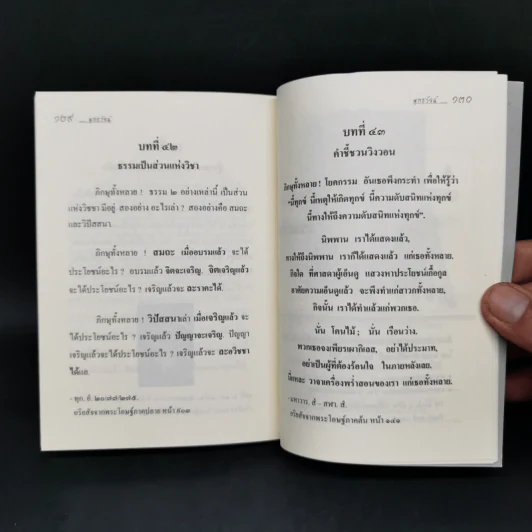 ๑๒๙ __ พุทธวัจน์
บทที่ ๔๒
ธรรมเป็นส่วนแห่งวิชา
ภิกษุทั้งหลาย ! ธรรม ๒ อย่างเหล่านี้ เป็นส่วน
แห่งวิชชา มีอยู่ สองอย่าง อะไรเล่า ? สองอย่างคือ สมถะ
และวิปัสสนา.
ภิกษุทั้งหลาย ! สมถะ เมื่ออบรมแล้ว จะได้
ประโยชน์อะไร ? อบรมแล้ว จิตจะเจริญ. จิตเจริญแล้ว
จะได้ประโยชน์อะไร ? เจริญแล้วจะ ละราคะได้.
ภิกษุทั้งหลาย ! วิปัสสนาเล่า เมื่อเจริญแล้ว จะ
ได้ประโยชน์อะไร ? เจริญแล้ว ปัญญาจะเจริญ. ปัญญา
เจริญแล้วจะได้ประโยชน์อะไร ? เจริญแล้วจะ ละอวิชชา
ได้แล.
- ทุก. อํ. ๒๐/๗๗/๒๗๕.
อริยสัจจากพระโอษฐ์ภาคปลาย หน้า
พุทธวัจน์ __ ๑๓๐
บทที่ ๔๓
คำชี้ชวนวิงวอน
ภิกษุทั้งหลาย ! โยคกรรม อันเธอพึงกระทำ เพื่อให้รู้ว่า
"นี้ทุกข์ นี้เหตุให้เกิดทุกข์ นี้ความดับสนิทแห่งทุกข์
นี้ทางให้ถึงความดับสนิทแห่งทุกข์".
นิพพาน เราได้แสดงแล้ว,
ทางให้ถึงนิพพาน เราก็ได้แสดงแล้ว แก่เธอทั้งหลาย.
กิจใด ที่ศาสดาผู้เอ็นดู แสวงหาประโยชน์เกื้อกูล
อาศัยความเอ็นดูแล้ว จะพึงทำแก่สาวกทั้งหลาย,
กิจนั้น เราได้ทำแล้วแก่พวกเธอ.
นั่น โคนไม้; นั่น เรือนว่าง.
พวกเธอจงเพียรเผากิเลส, อย่าได้ประมาท,
อย่าเป็นผู้ที่ต้องร้อนใจ ในภายหลังเลย.
นี่แหละ วาจาเครื่องพร่ำสอนของเรา แก่เธอทั้งหลาย.
- มหาวาร. สํ - สฬา. สํ.
อริยสัจจากพระโอษฐ์ภาคต้น หน้า